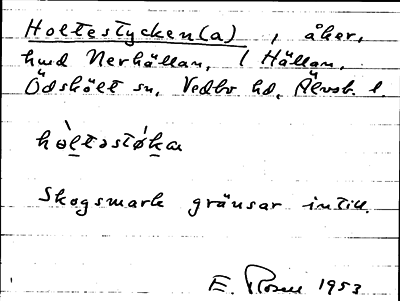 Holtestycken(a), åker,
hmd Nerhällan, / Hällan,
Ödskölt sn, Vedbo hd, Älvsb. l.
hòltəstǿka
Skogsmark gränsar intill.
E. Rosell 1953